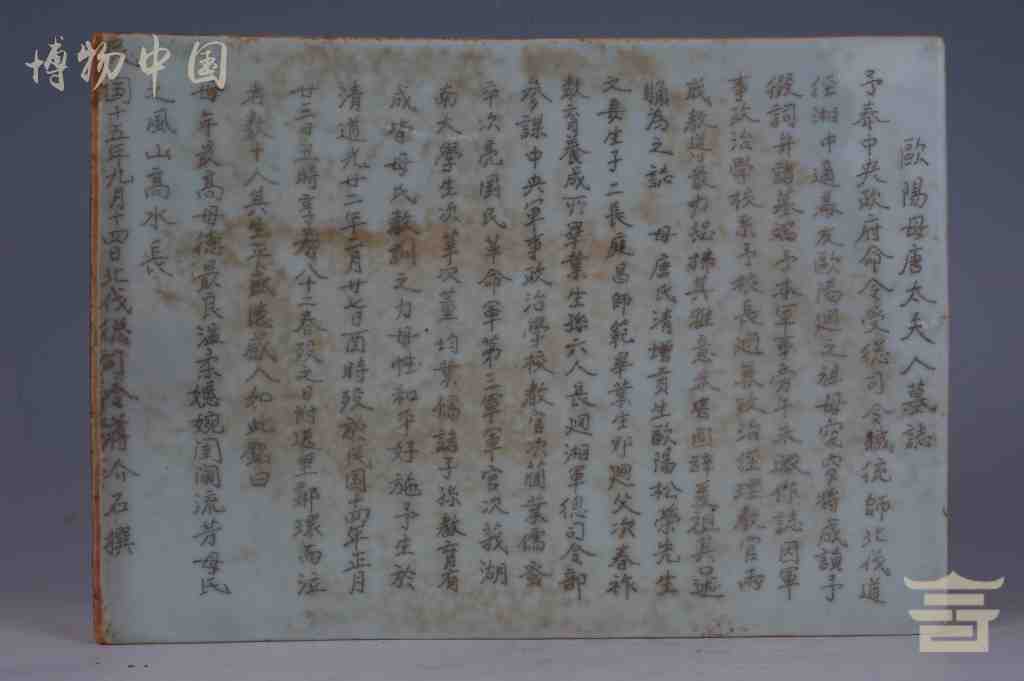 博物中国
歐陽母唐太夫人墓誌
予奉中央政府命令受總司令職統師北伐道
經湘中適幕友歐陽迴之祖母窆穸将成請予
綴詞弁諸墓端予本軍事旁午未遑作誌因軍
事政治學校系予校長迴氣政治經理教官而
成教導最力經拂其雅意
為之誌 母唐氏清增貢生歐陽松榮先生
之妻生子二長庭昌師範畢業生即迴父次春祚
教育養成所畢業生孫六人長迴湘軍總司令部
參謀中央軍事政治學校教官次蘭業儒
平次亮國民革命軍第三軍軍官次莪湖
南大學生次莘次菫均業儒誌子孫教育有
成皆母氏教訓之力母性和平好施予生於
清道光廿二年二月廿七日酉時歿於民国十四年正月
廿三日丑時享壽八十二春歿之日附近軍鄰環而泣
者數十人其生平盛德感人如此銘曰
母年最高母德最良溫柔婉婉閨閫流芳母氏
之風山高水長
民国十五年九月十四日北伐總司令蔣介石撰